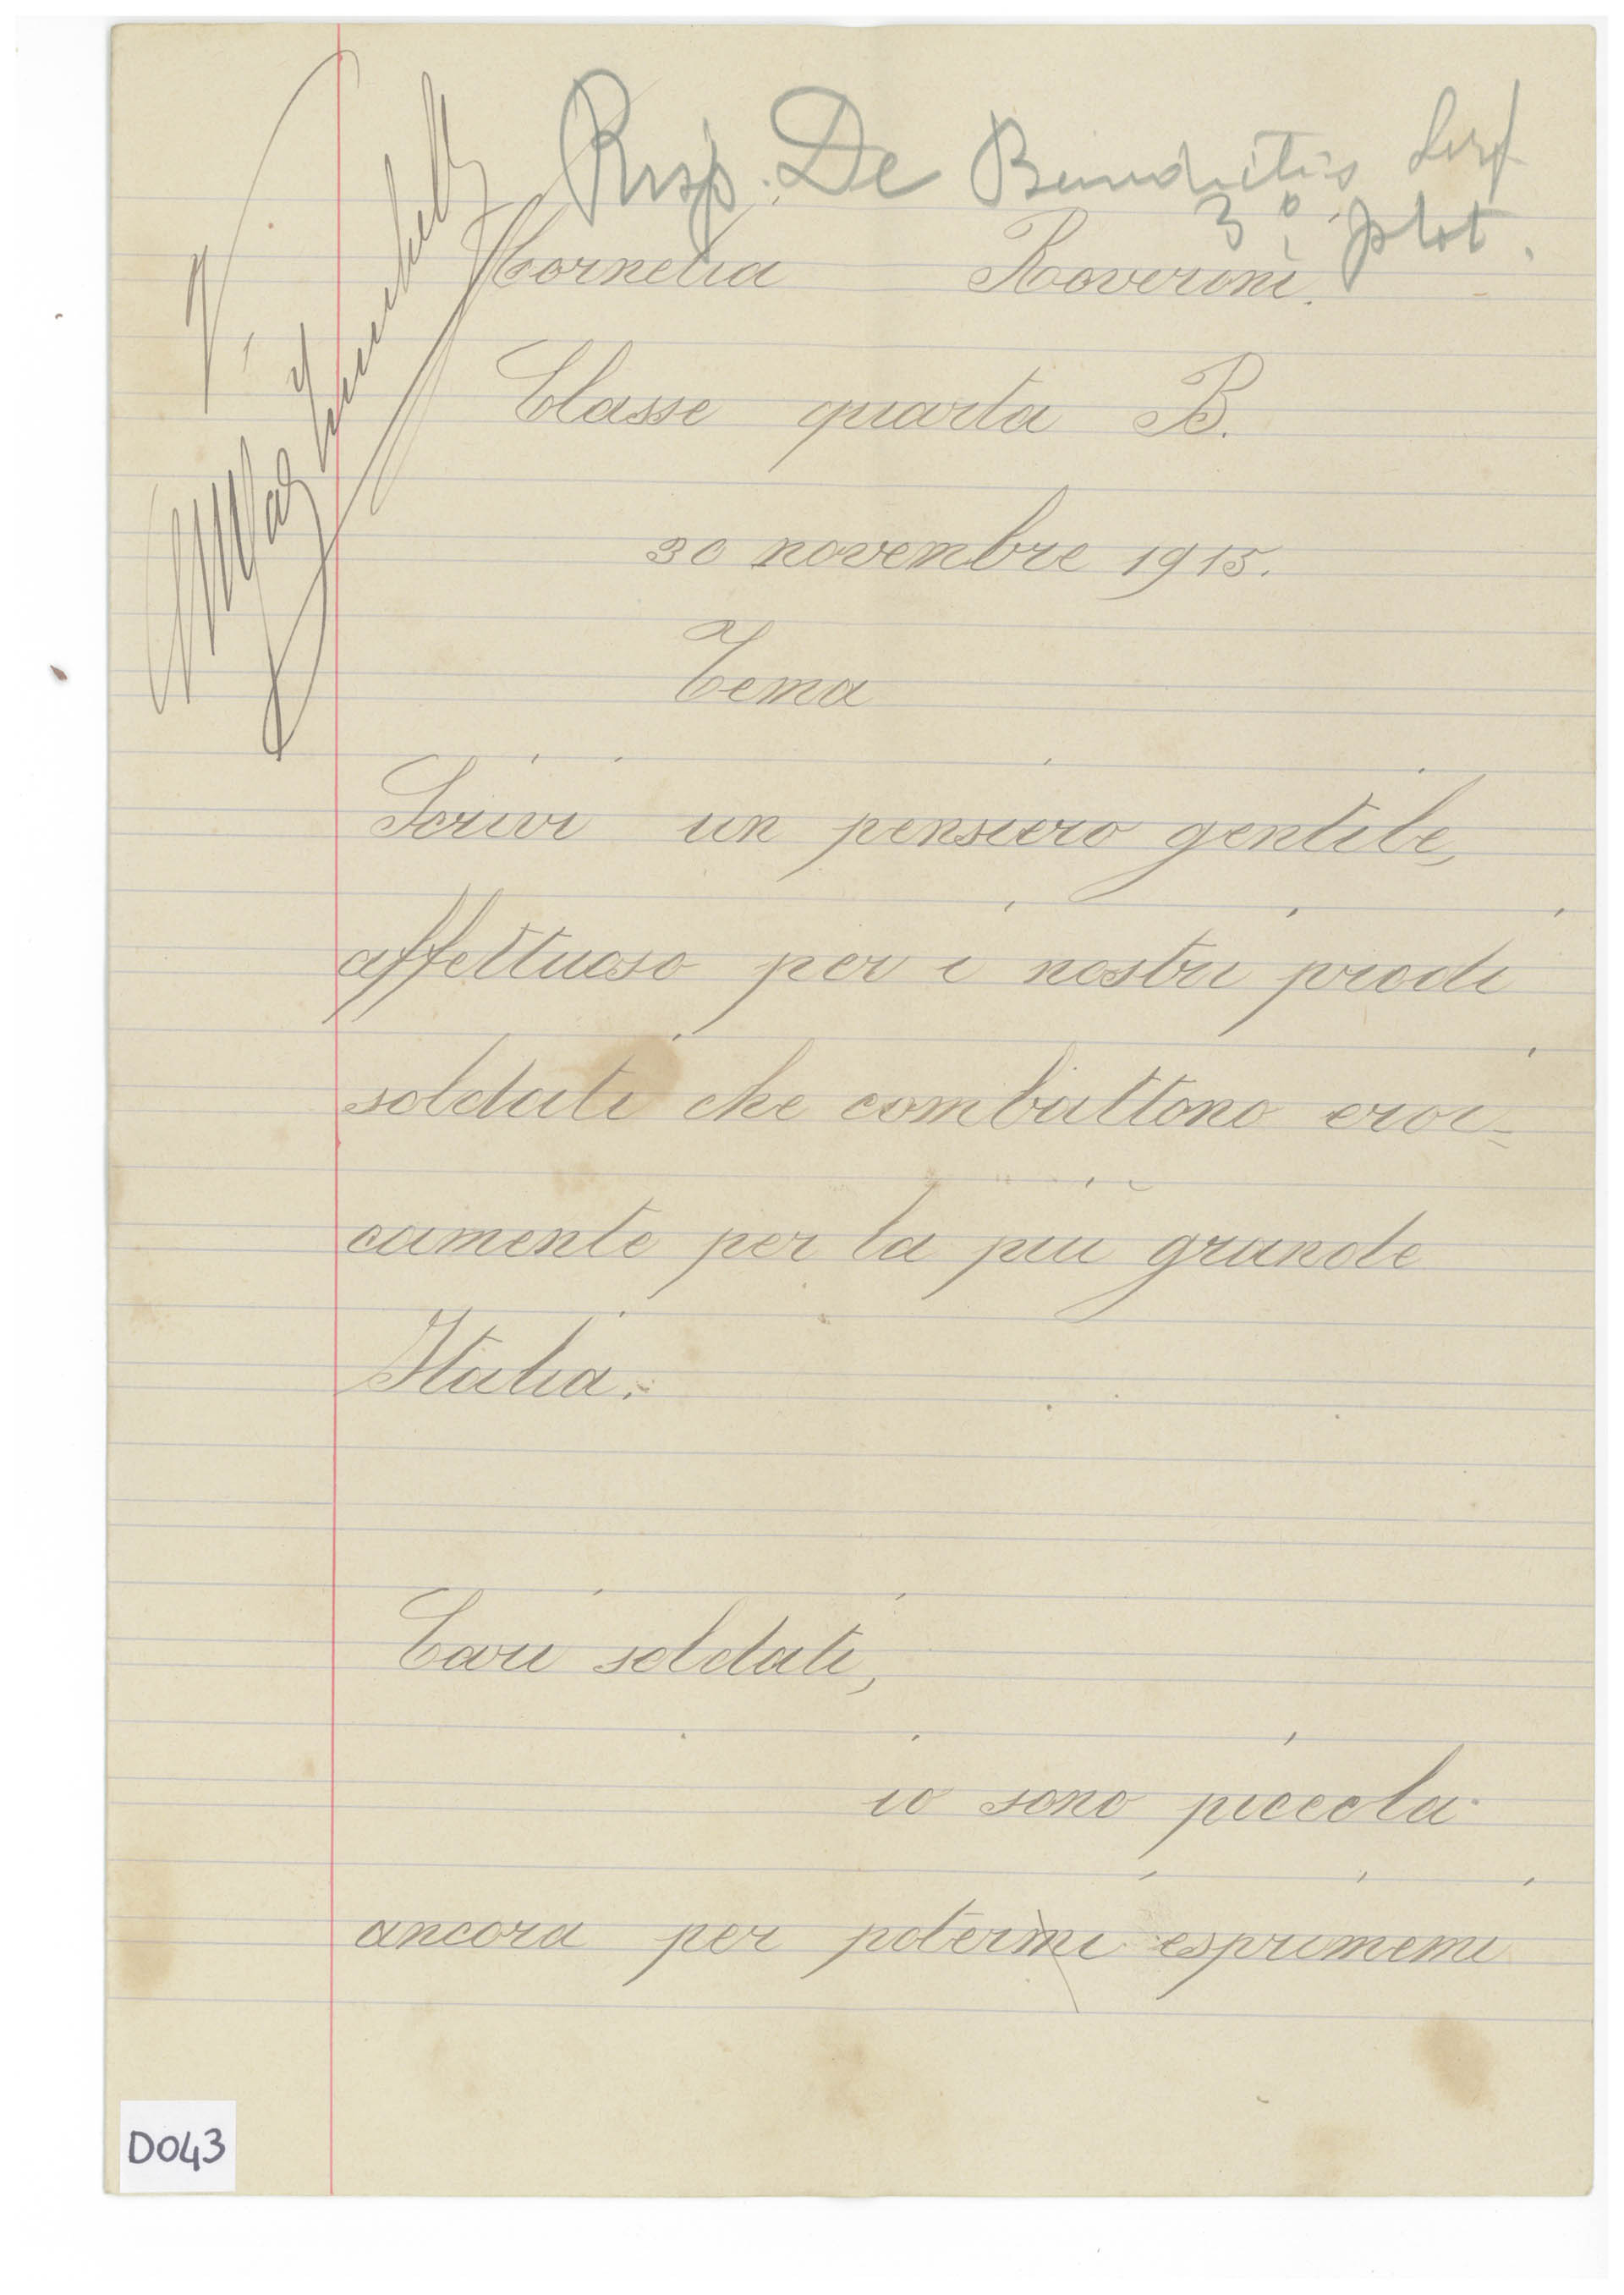 Risp. De Benedictis Serg
3° plot.
Cornelia Roverini.
Classe quarta B.
30 novembre 1915.
Tema
Scrivi un pensiero gentile,
affettuoso per i nostri prodi
soldati che combattono eroi=
camente per la più grande
Italia.
Cari soldati,
io sono piccola
ancora per potermi esprimemi
D043